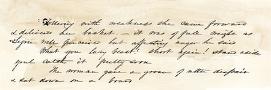 Reeling with weakness she came forward
& delivered her basket, — it was of full weight as
Legree well perceived but affecting anger he said
What you lazy beast! short again! stand aside
you'll catch it pretty soon
The woman gave a groan of utter despair
& sat down on a board